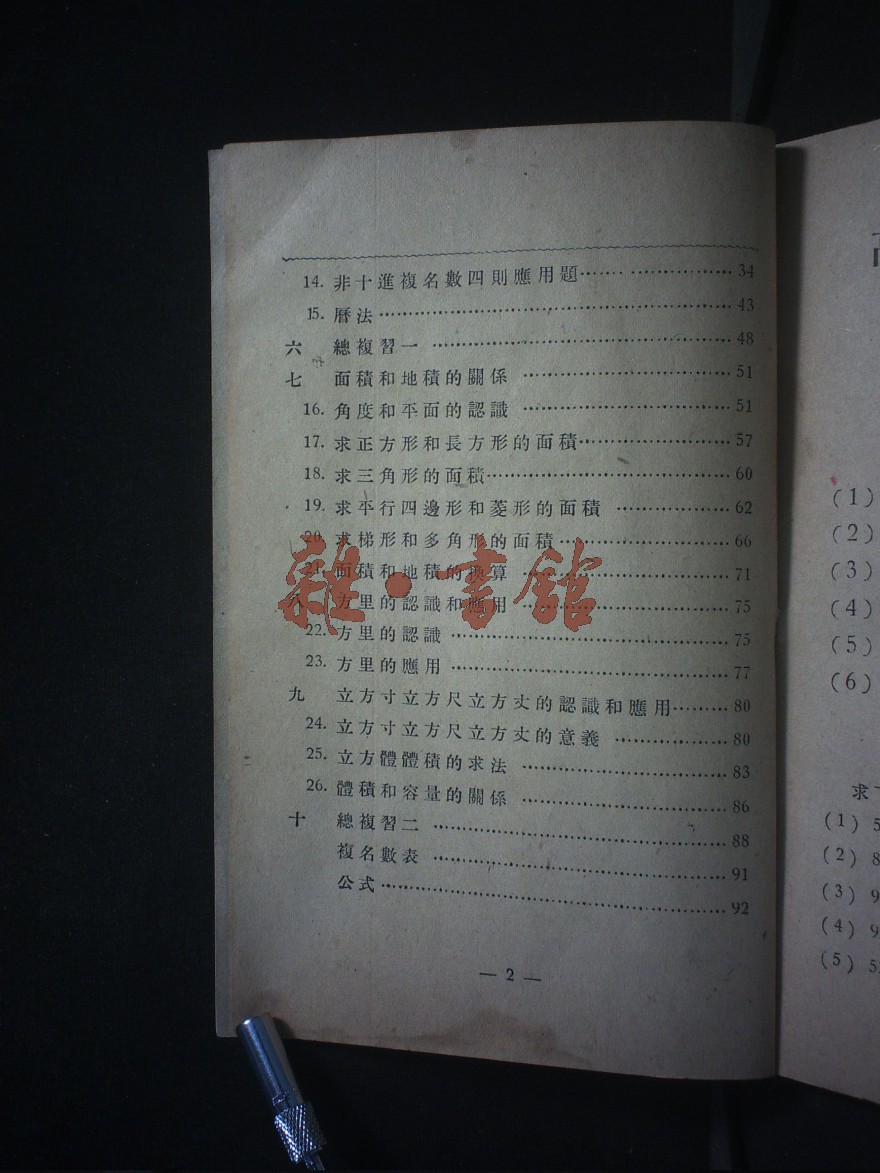 14. 非十進複名數四則應用題 34
15. 曆法 43
六 總複習一 48
七 面積和地積的關係 51
16. 角度和平面的認識 51
17. 求正方形和長方形的面積 57
18. 求三角形的面積 60
19. 求平行四邊形和菱形的面積 62
20. 求梯形和多角形的面積 66
21. 面積和地積的換算 71
八 方里的認識和應用 75
22. 方里的認識 75
23. 方里的應用 77
九 立方寸立方尺立方丈的認識和應用 80
24. 立方寸立方尺立方丈的意義 80
25. 立方體體積的求法 83
26. 體積和容量的關係 86
十 總複習二 88
複名數表 91
公式 92
— 2 —
雜·書館
(1)
(2)
(3)
(4)
(5)
(6)
求
(1) 5
(2) 8
(3) 9
(4) 9
(5) 5